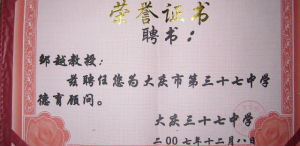 荣誉证书
聘书：
邹越教授：
兹聘任您为大庆市第三十七中学
德育顾问。
大庆三十七中学
二00七年十二月八日